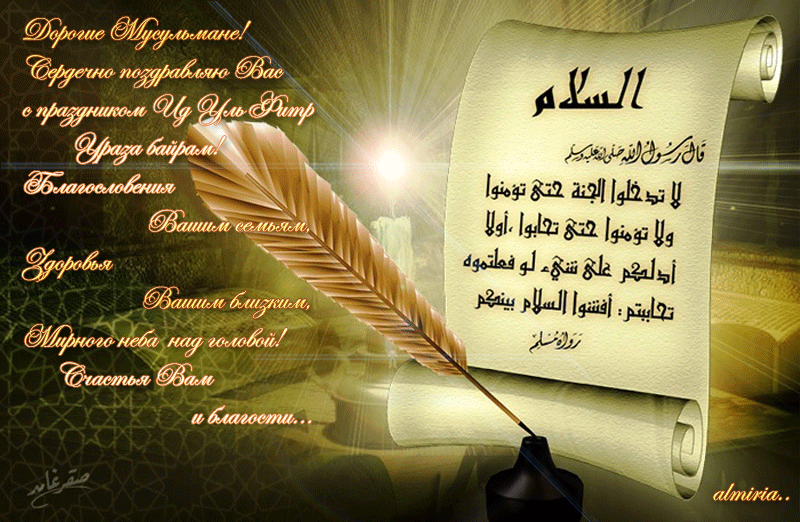 Дорогие Мусульмане!
Сердечно поздравляю Вас
с праздником Ид Уль Фитр
Ураза байрам!
Благословения
Вашим семьям,
Здоровья
Вашим близким,
Мирного неба над головой!
Счастья Вам
и благости...
السلام
قال رسول الله صلى الله عليه وسلم
لا تدخلوا الجنة حتى تؤمنوا
ولا تؤمنوا حتى تحابوا ،أولا
أدلكم على شيء لو فعلتموه
تحاببتم : أفشوا السلام بينكم
رواه مسلم
صقر غامد
almiria..